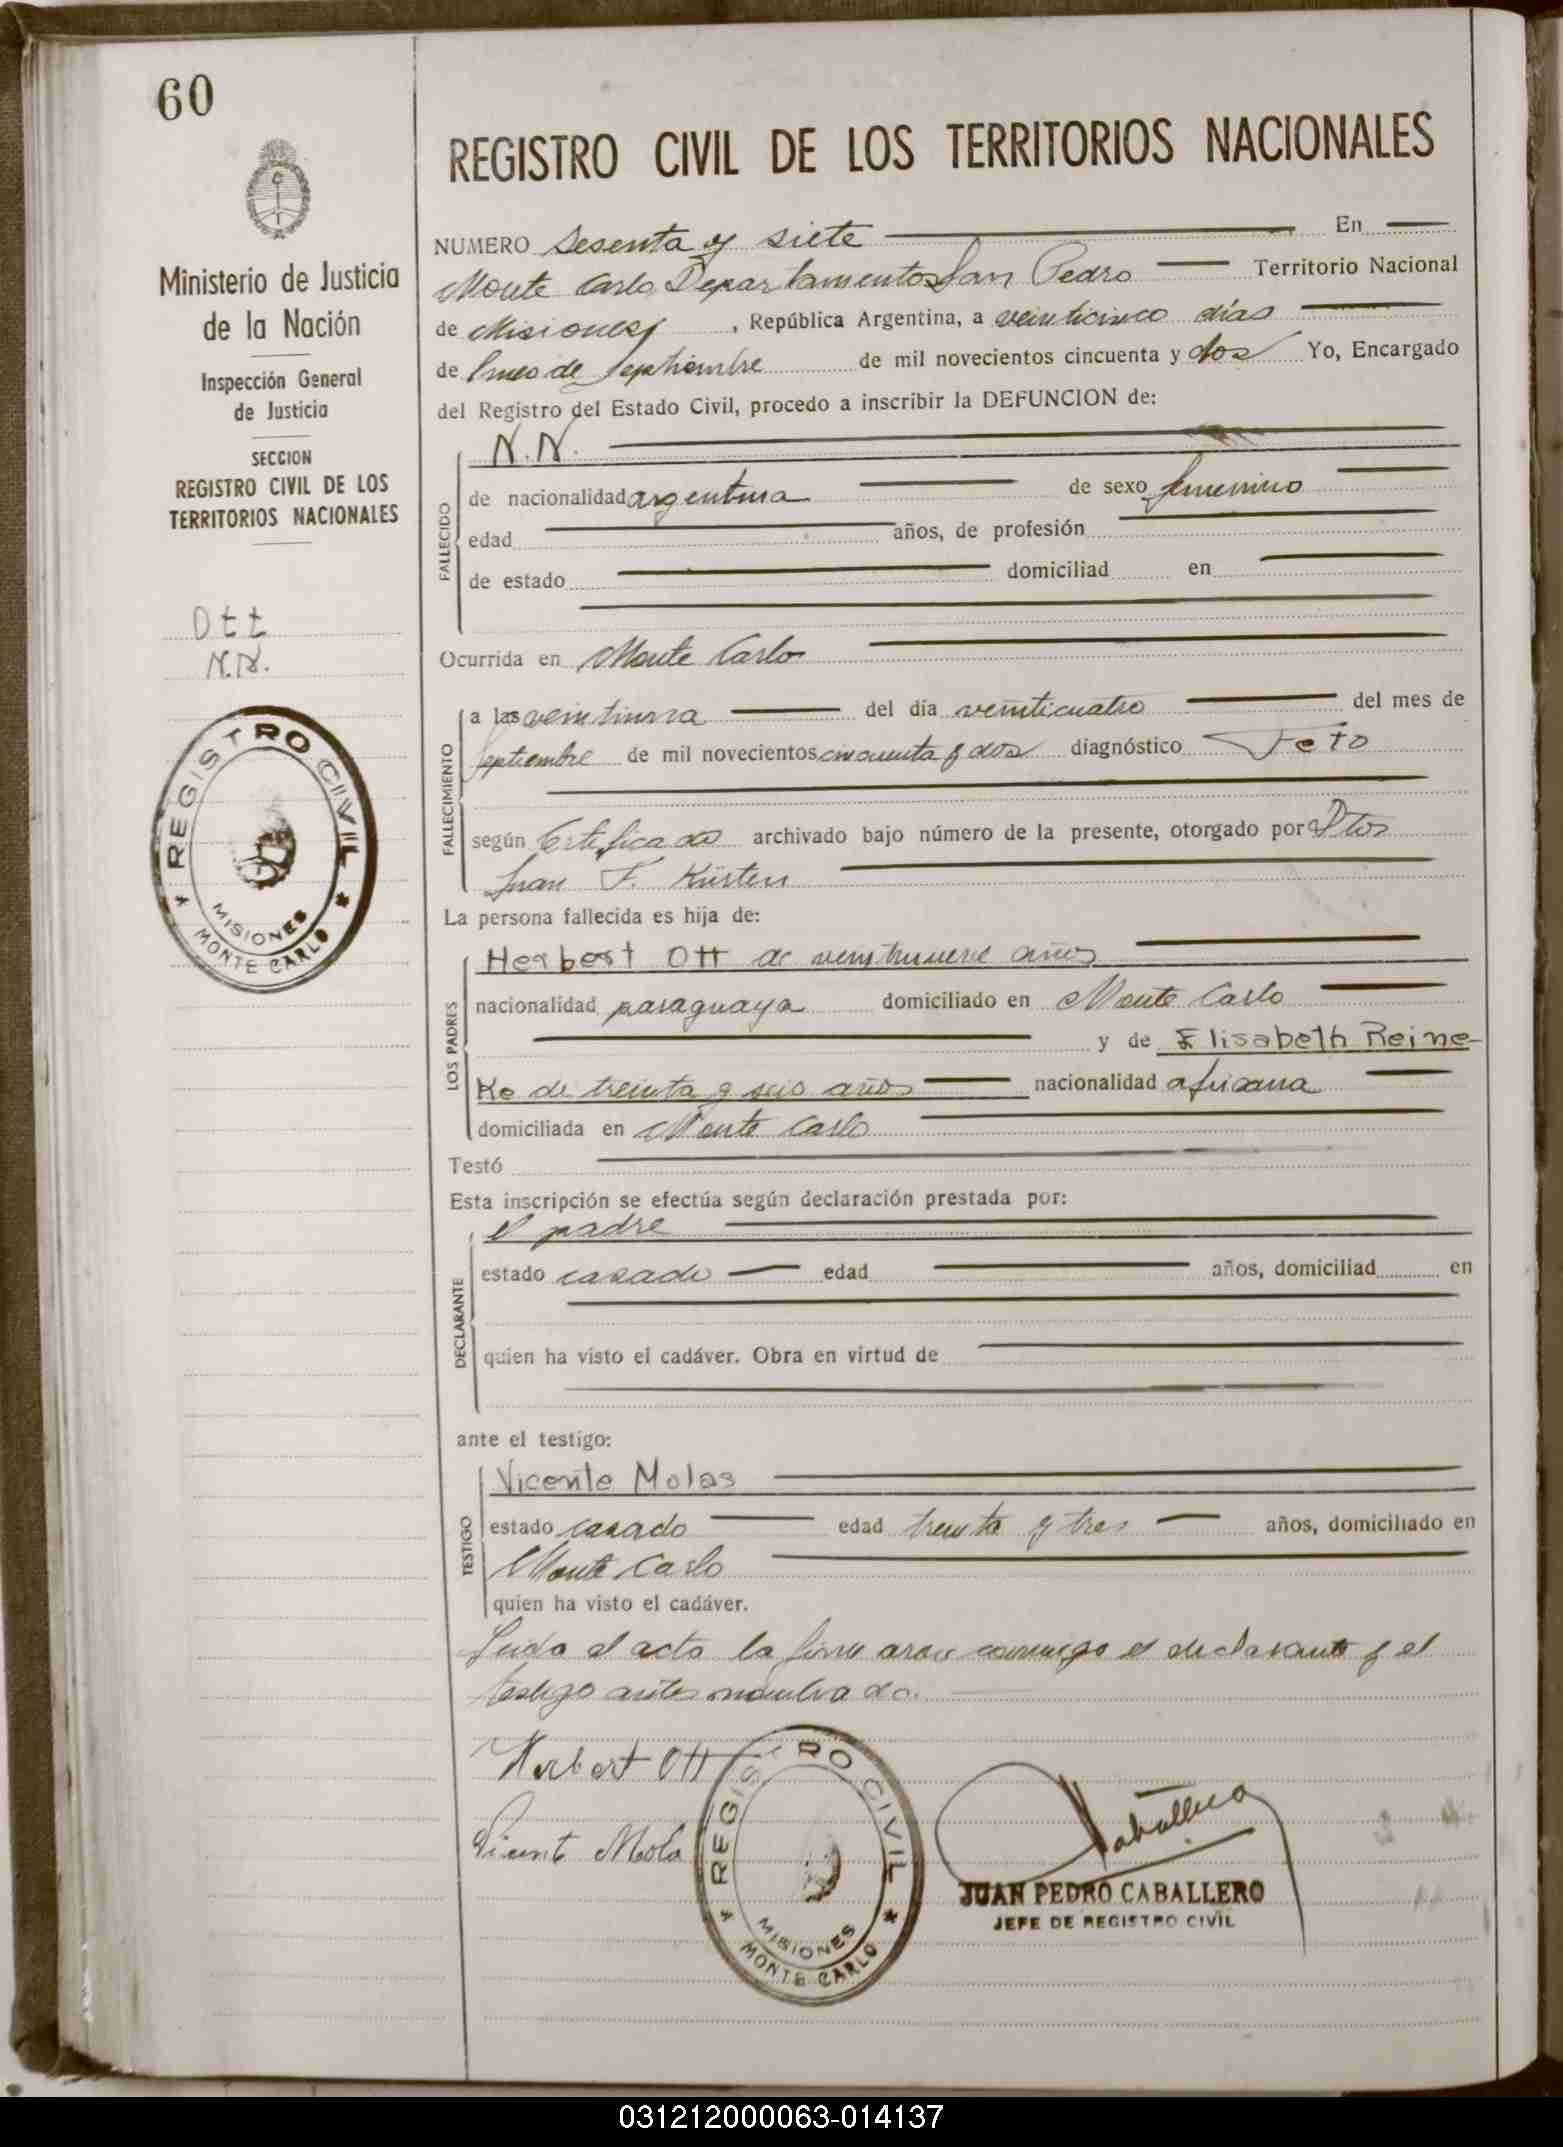 60
Ministerio de Justicia
de la Nación
Inspección General
de Justicia
SECCION
REGISTRO CIVIL DE LOS
TERRITORIOS NACIONALES
Ott
N.N.
REGISTRO CIVIL
MISIONES
MONTE CARLO
REGISTRO CIVIL DE LOS TERRITORIOS NACIONALES
NUMERO sesenta y siete En
Monte Carlo Departamentos San Pedro Territorio Nacional
de Misiones, República Argentina, a veinticinco días
de l mes de Septiembre de mil novecientos cincuenta y dos Yo, Encargado
del Registro del Estado Civil, procedo a inscribir la DEFUNCION de:
N.N.
FALLECIDO
de nacionalidad argentina de sexo femenino
edad años, de profesión
de estado domiciliad en
Ocurrida en Monte Carlo
FALLECIMIENTO
a las veintiuna del día veinticuatro del mes de
Septiembre de mil novecientos cincuenta y dos diagnóstico Feto
según Certificado archivado bajo número de la presente, otorgado por
Juan F. Kürten
La persona fallecida es hija de:
LOS PADRES
Herbert Ott de veintinueve años
nacionalidad paraguaya domiciliado en Monte Carlo
y de Elisabeth Reine-
ke de treinta y seis años nacionalidad africana
domiciliada en Monte Carlo
Testó
Esta inscripción se efectúa según declaración prestada por:
DECLARANTE
el padre
estado casado edad años, domiciliad en
quien ha visto el cadáver. Obra en virtud de
ante el testigo:
TESTIGO
Vicente Molas
estado casado edad treinta y tres años, domiciliado en
Monte Carlo
quien ha visto el cadáver.
Leida el acta la firmaron conmigo el declarante y el
testigo antes nombrado.
Herbert Ott
Vicente Mola
REGISTRO CIVIL
MISIONES
MONTE CARLO
Caballero
JUAN PEDRO CABALLERO
JEFE DE REGISTRO CIVIL
031212000063-014137